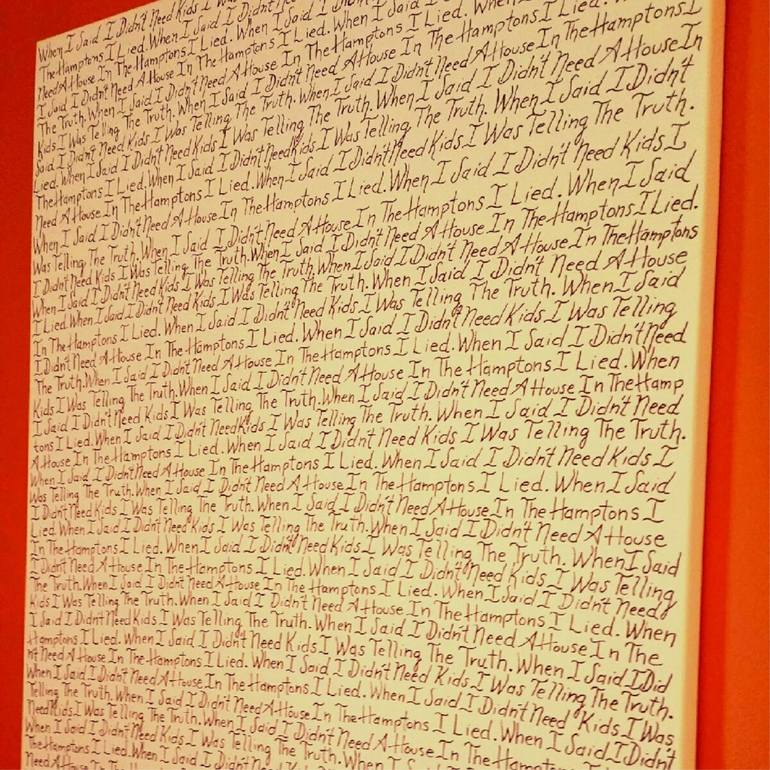 When I Said I Didn't Need Kids I
The Hamptons I Lied. When I Said I Didn't Need
Need A House In The Hamptons I Lied. When I Said I
I Said I Didn't Need A House In The Hamptons I Lied. When I
The Truth. When I Said I Didn't Need A House In The Hamptons I Lied.
Kids I Was Telling The Truth. When I Said I Didn't Need A House In The Hamptons I
Said I Didn't Need Kids I Was Telling The Truth. When I Said I Didn't Need A House In
Lied. When I Said I Didn't Need Kids I Was Telling The Truth. When I Said I Didn't
The Hamptons I Lied. When I Said I Didn't Need Kids I Was Telling The Truth.
Need A House In The Hamptons I Lied. When I Said I Didn't Need Kids I
When I Said I Didn't Need A House In The Hamptons I Lied. When I Said
Was Telling The Truth. When I Said I Didn't Need A House In The Hamptons I Lied.
I Didn't Need Kids I Was Telling The Truth. When I Said I Didn't Need A House In The Hamptons
When I Said I Didn't Need Kids I Was Telling The Truth. When I Said I Didn't Need A House
I Lied. When I Said I Didn't Need Kids I Was Telling The Truth. When I Said
In The Hamptons I Lied. When I Said I Didn't Need Kids I Was Telling
I Didn't Need A House In The Hamptons I Lied. When I Said I Didn't Need
The Truth. When I Said I Didn't Need A House In The Hamptons I Lied. When
Kids I Was Telling The Truth. When I Said I Didn't Need A House In The Hamp
I Said I Didn't Need Kids I Was Telling The Truth. When I Said I Didn't Need
tons I Lied. When I Said I Didn't Need Kids I Was Telling The Truth.
A House In The Hamptons I Lied. When I Said I Didn't Need Kids I
When I Said I Didn't Need A House In The Hamptons I Lied. When I Said
Was Telling The Truth. When I Said I Didn't Need A House In The Hamptons I
I Didn't Need Kids I Was Telling The Truth. When I Said I Didn't Need A House
Lied When I Said I Didn't Need Kids I Was Telling The Truth. When I Said
In The Hamptons I Lied. When I Said I Didn't Need Kids I Was Telling
I Didn't Need A House In The Hamptons I Lied. When I Said I Didn't Need
The Truth. When I Said I Didn't Need A House In The Hamptons I Lied. When
Kids I Was Telling The Truth. When I Said I Didn't Need A House In The
I Said I Didn't Need Kids I Was Telling The Truth. When I Said I Did
Hamptons I Lied. When I Said I Didn't Need Kids I Was Telling The Truth.
n't Need A House In The Hamptons I Lied. When I Said I Didn't Need Kids I Was
When I Said I Didn't Need A House In The Hamptons I Lied. When I Said I Didn't
Telling The Truth. When I Said I Didn't Need A House In The Hamptons
Need Kids I Was Telling The Truth. When I Said I Didn't Need A House
When I Said I Didn't Need Kids I Was Telling The Truth. When
The Hamptons I Lied. When I
Need A House